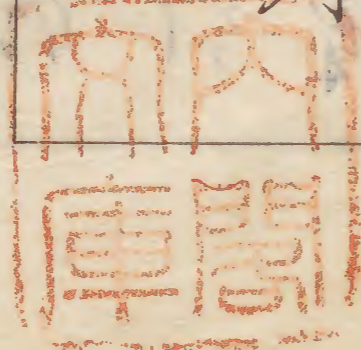 内閣
文庫